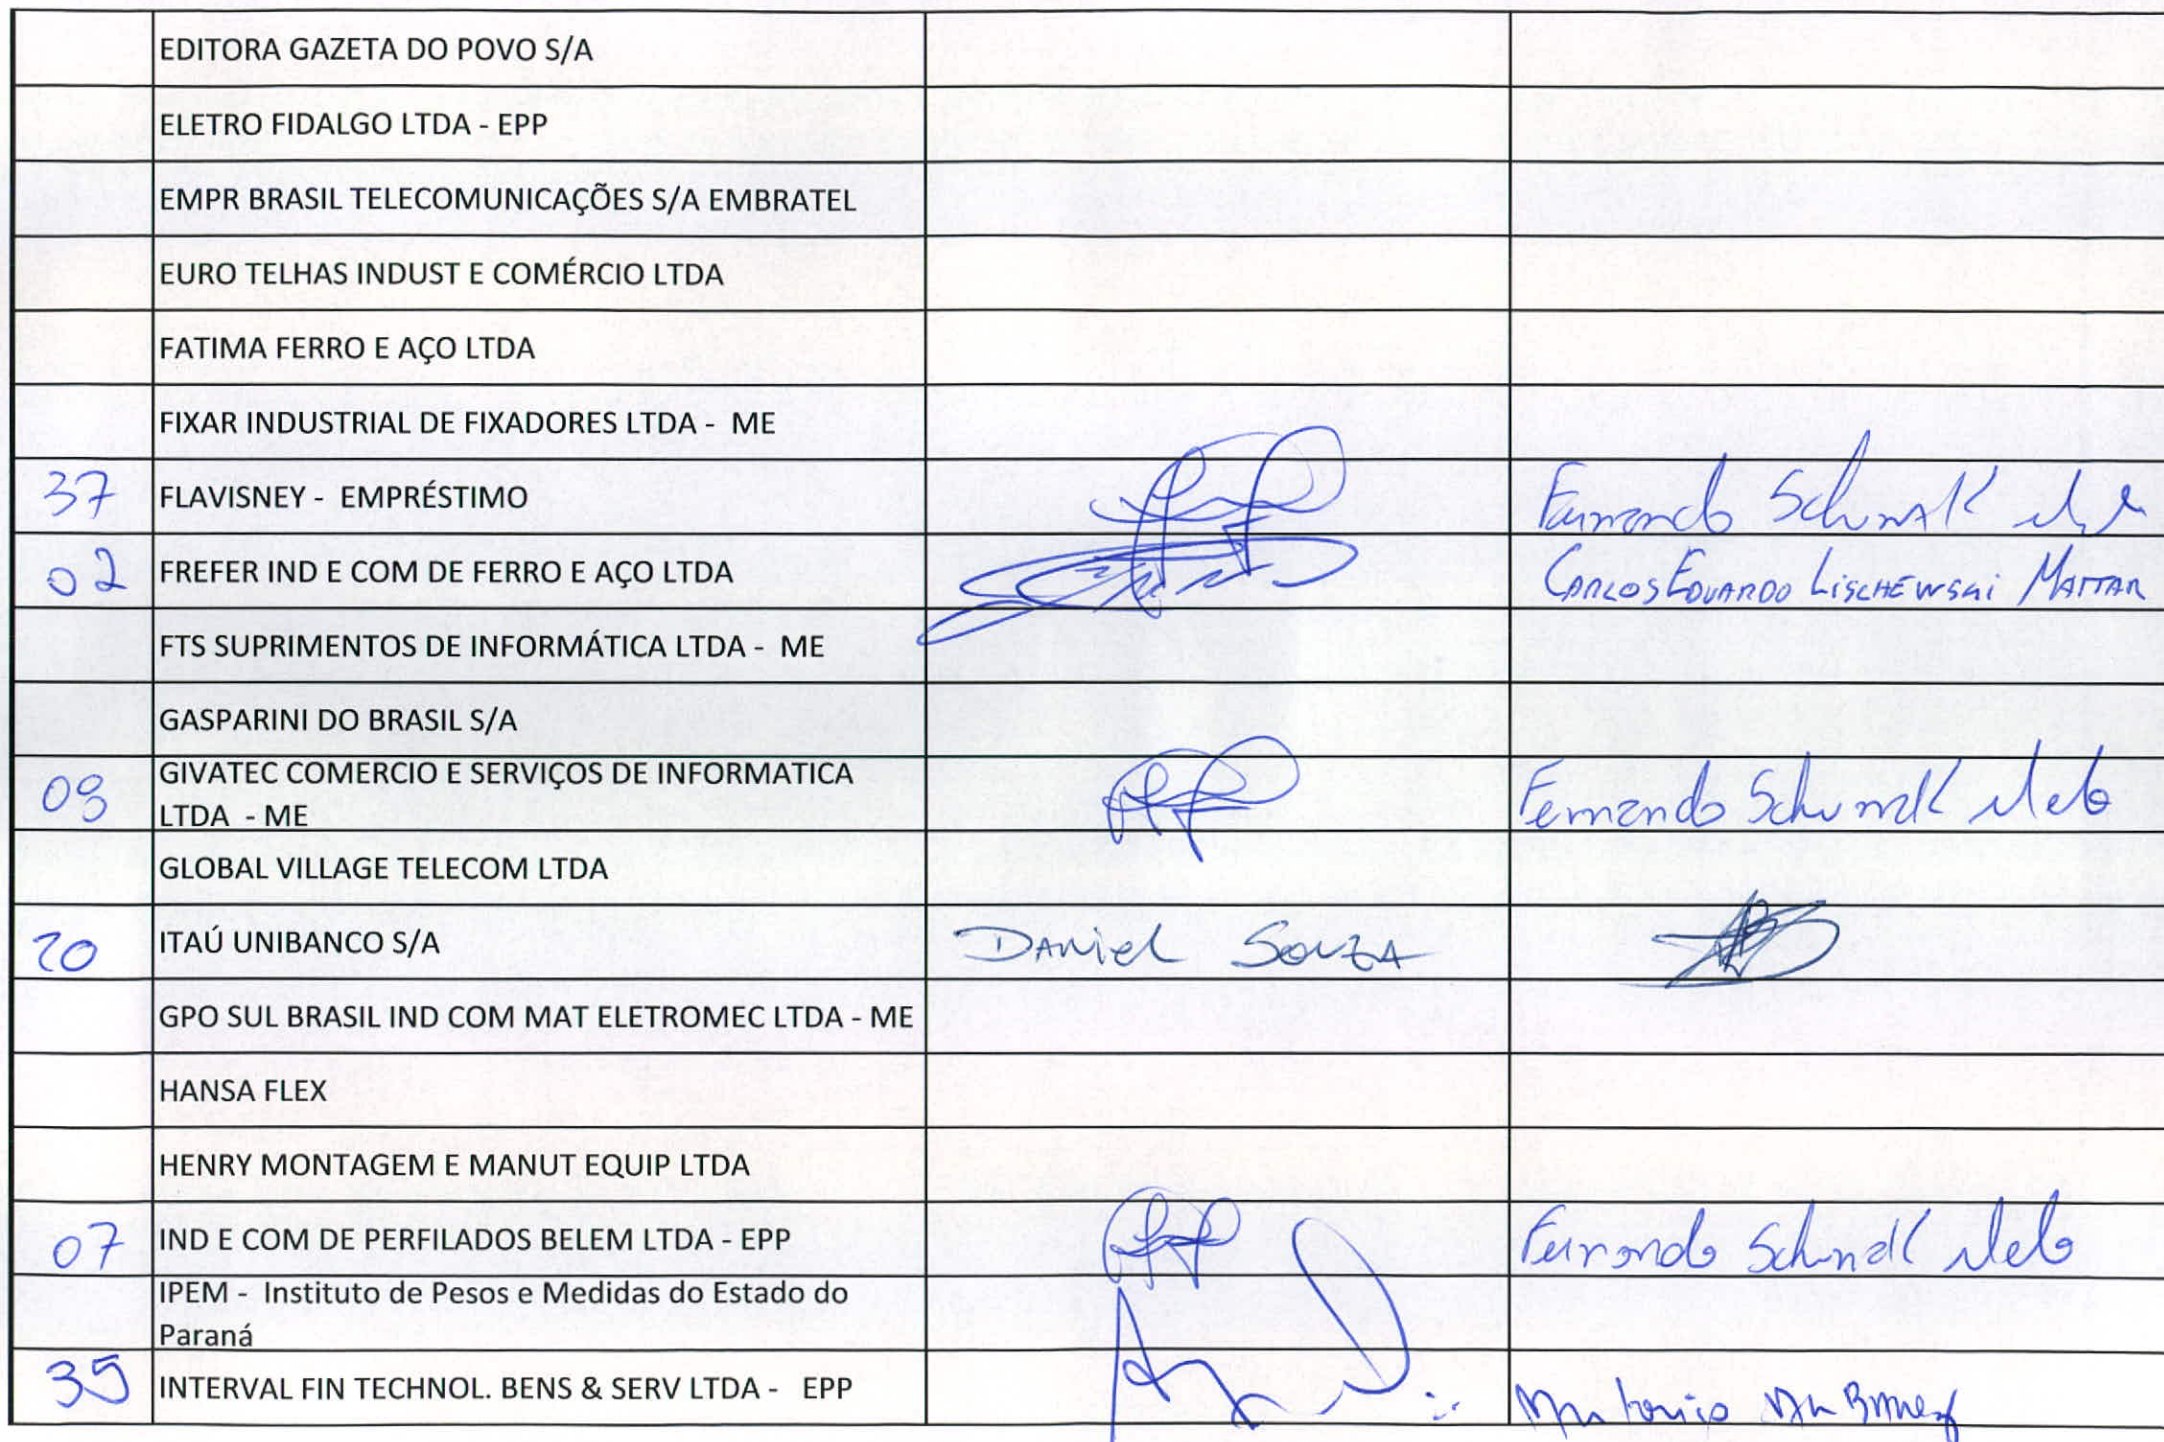 EDITORA GAZETA DO POVO S/A
ELETRO FIDALGO LTDA - EPP
EMPR BRASIL TELECOMUNICAÇÕES S/A EMBRATEL
EURO TELHAS INDUST E COMÉRCIO LTDA
FATIMA FERRO E AÇO LTDA
FIXAR INDUSTRIAL DE FIXADORES LTDA - ME
37 FLAVISNEY - EMPRÉSTIMO Fernando
02 FREFER IND E COM DE FERRO E AÇO LTDA CARLOS EDUARDO LISCHEWSKI MATTAR
FTS SUPRIMENTOS DE INFORMÁTICA LTDA - ME
GASPARINI DO BRASIL S/A
09 GIVATEC COMERCIO E SERVIÇOS DE INFORMATICA
LTDA - ME Fernando
GLOBAL VILLAGE TELECOM LTDA
20 ITAÚ UNIBANCO S/A DANIEL SOUZA
GPO SUL BRASIL IND COM MAT ELETROMEC LTDA - ME
HANSA FLEX
HENRY MONTAGEM E MANUT EQUIP LTDA
07 IND E COM DE PERFILADOS BELEM LTDA - EPP Fernando
IPEM - Instituto de Pesos e Medidas do Estado do
Paraná
35 INTERVAL FIN TECHNOL. BENS & SERV LTDA - EPP